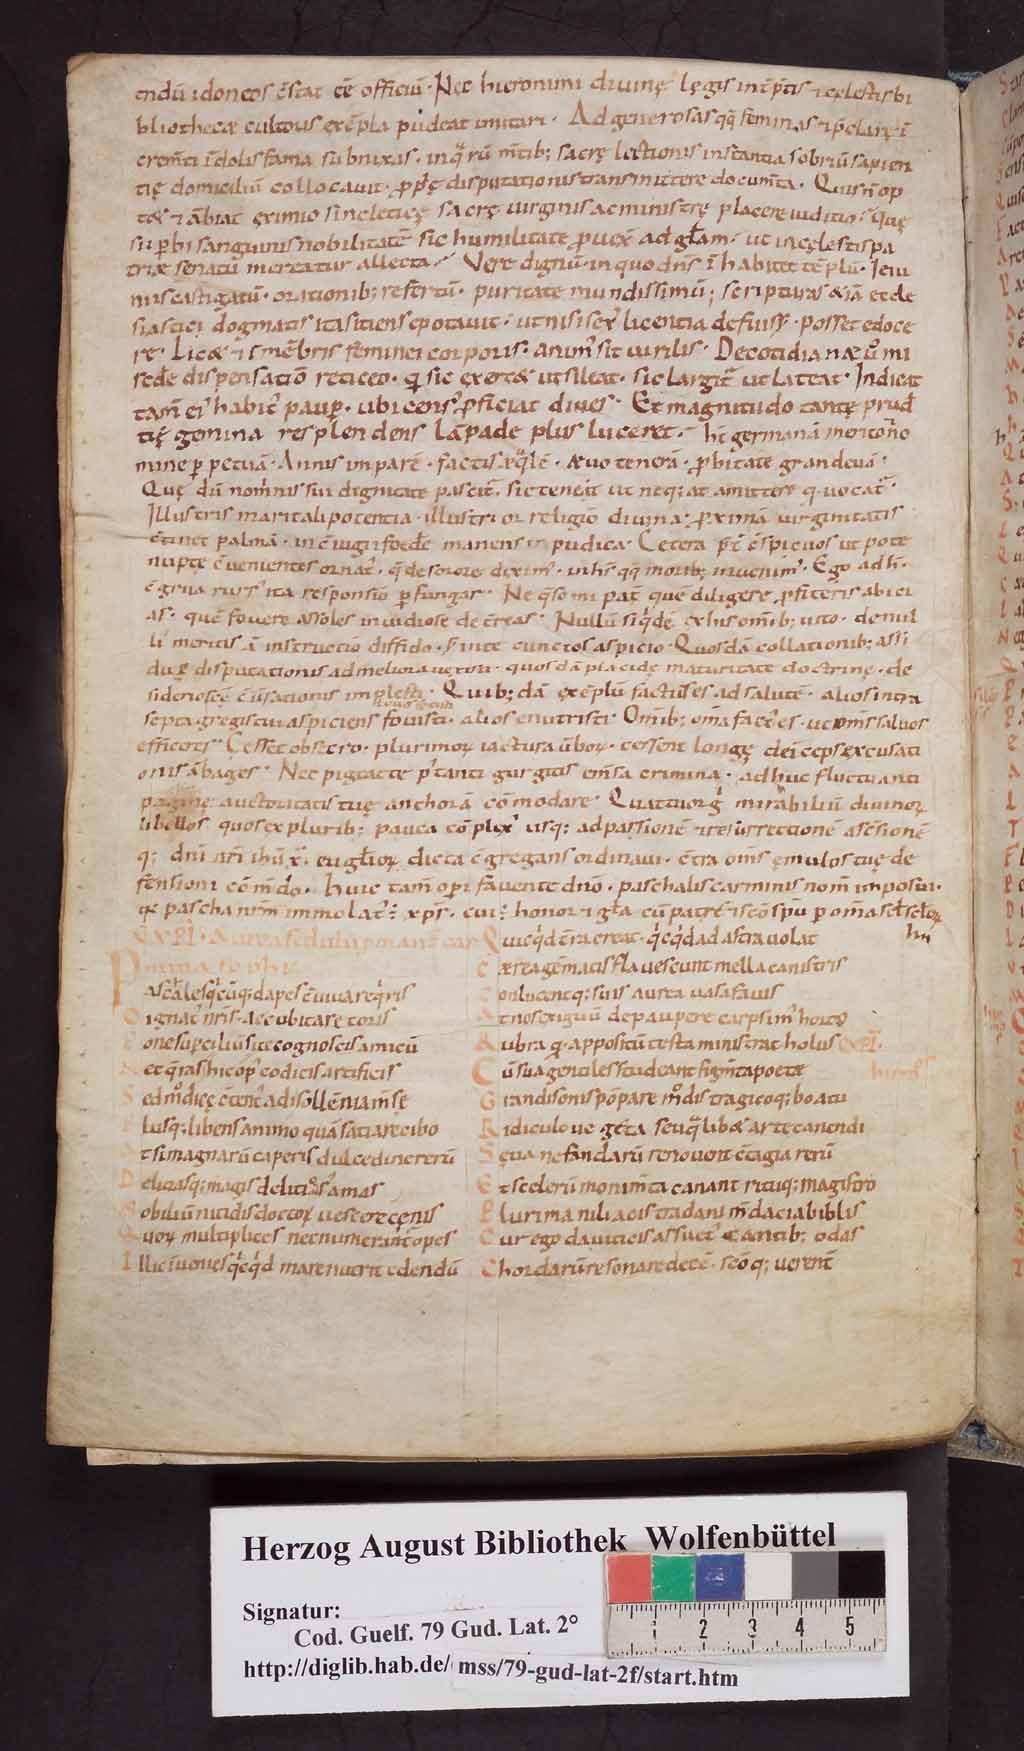 endū idoneos c̄stat eē officiū · Nec hieronimi diuinę lęgis int̄p̄tis ⁊ cęlestis bi
bliothecæ cultoris exēpla pudeat imitari · Ad generosas qq̨ feminas ⁊ p̄clarę ī
crem̄ti īdolis fama subnixas · in q̄rū m̄tib; sacrę lectionis instantia sobriū sapien
tię domiciliū collocauit · ꝓp̄ę disputationis transmittere docum̄ta · Quis n̄ op
tet ⁊ ābiat eximio sincleticę sacrę uirginis ac ministrę placere iuditio · Quę
sup̄bi sanguinis nobilitatē sic humilitate ꝓuex̄ ad gl̄am · ut in cęlestis pa
triæ senatū mereatur allecta · Vere dignū · in quo dn̄s īhabitet tēplū · Ieiu
niis castigatū · orationib; refertū · puritate mundissimū ; scripturas &iā eccle
siastici dogmatis ita sitiens epotauit · ut nisi sex̄ licentia defuiss& · posset edoce
re · Lic& ⁊ ī mēbris feminei corporis · animꝰ sit uirilis · De cotidianæ u̓o mi
sc̄dę dispensatiō reticeo · q̄ sic exerc& ut sileat · sic largit̄ ut lateat · Indicat
tam̄ eiꝰ habitꝰ paup̄ · ubi censꝰ ꝓficiat diues · Et magnitudo tantę prud̄
tię gemina resplendens lāpade plus luceret · h̄t germanā merito n̄o
mine p̄petuā · Annis imparē · factis æq̄lē · æuo tenerā · ꝓbitate grandeuā ·
Quę dū nom̄nis sui dignitate pascit̄ · sic tenēat ut neq; at amittere q · uocat̄ ·
Illustris maritali potentia · illustrior religiō diuina · ꝓximā uirginitatis
c̄tinet palmā · in c̄iugii foed̄e manens īpudica · Cetera p̄t c̄spicuos ut pote
nuptę c̄uenientes ornat̄ · q̄ de sorore diximꝰ · in hac qq̨ morib; inuenimꝰ · Ego ad h̄ ·
c̄grua rursꝰ ita responsiō p̄fungar · Ne q̄so mi pat̄ quē diligere ꝓfiteris abici
as · quē fouere assoles inuidiose de c̄reas · Nullū siq̄dē ex his om̄ib; uito · de nul
li meritis ā instructiō diffido · s; inte cunctos aspicio · Quosdā collationib; assi
duę disputationis ad meliora uexisti · quosdā placidę maturitate doctrinę · de
siderioscē c̄uersationis implesti · Quib;dā exēplū factus es ad salutē · alios intra
septa gregis tui aspiciens fouisti · alios enutristi · Om̄ib; om̄a factꝰ es · ut om̄s saluos
efficeres · Cesset obsecro · plurimoꝝ iactura ūboꝝ · cessent longę deiceps excusati
onis ābages · Nec pigeat te p̄tanti gurgitis em̄sa crimina · adhuc fluctuanti
paginę auctoritatis tuę anchorā cōmodare · Quattuor g̊ mirabiliū diuinoꝝ
libellos quos ex plurib; pauca cōplexꝰ usq; ad passionē ⁊ resurrectionē ascēsionē
q; dn̄i n̄ri ihū x̄ · eugl̄ioꝝ dicta c̄gregans ordinaui · c̄tra om̄s emulos tuę de
fensioni cōm̄do · Huic tam̄ op̄i fauente dn̄o · paschalis carminis nom̄ imposui ·
qꝛ pascha nr̄m immolatꝰ ē xp̄s · cui ē honor ⁊ gl̄a cū patre ⁊ sc̄o spū p̄ om̄a sc̄la sc̄loꝝ
Pascales q̄cūq; dapes c̄uiua req̄ris
Dignatꝰ nr̄is accubitare toris
Pone supciliū si te cognoscis amicū
Nec q̄ras hic opꝰ codicis artificis
Sed modicę c̄tentꝰ adi sollēnia m̄sę
Plusq; libens animo quā satiare cibo
At si magnarū caperis dulcedine rerū
Delitiasq; magis delitiosꝰ amas
Nobiliū nitidis doctoꝝ uescere cęnis
Quoꝝ multiplices nec numerant̄ opes
Illic inuenies q̄cq̄d mare nutrit edendū
Quicq̄d t̄ra creat · q̄cq̄d ad astra uolat
Cærea gēmatis flauescunt mella canistris
Conlucentq; suis aurea uasa fauis
At nos exiguū de paupere carpsimꝰ horto
Rubra q̄ appositū testa ministrat holus EXPL ·
Cū sua gentiles studeant figm̄ta poetæ
Grandisonis pōpare modis tragicoq; boatu
Ridiculoue getæ seu qualib& arte canendi
Sęua nefandarū renouent c̄tagia rerū
Et scelerū monim̄ta canant rituq; magistro
Plurima niliacis tradant m̄dacia biblis
Cur ego dauiticis assuetꝰ cantib; odas
Chordarū resonare decē · sc̄oq; uerent̄
Herzog August Bibliothek Wolfenbüttel
Signatur:
Cod. Guelf. 79 Gud. Lat. 2°
http://diglib.hab.de/ mss/79-gud-lat-2f/start.htm
1 2 3 4 5